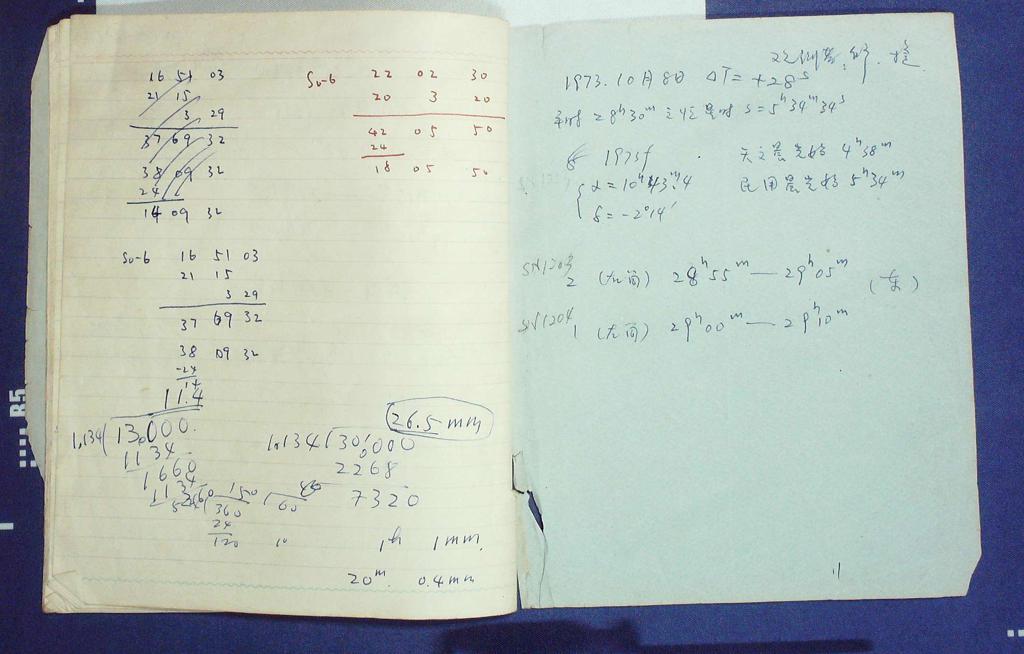 16 51 03
21 15
3 29
37 69 32
38 09 32
24
14 09 32
So-6 22 02 30
20 3 20
42 05 50
24
18 05 50
So-6 16 51 03
21 15
3 29
37 69 32
38 09 32
-24
14
11.4
1.134 13.000.
1134
1660
1134
26.5 mm
1.134 30.000
2268
7320
150
360
24
120
60
10
1h 1mm.
20m. 0.4mm
1973.10月8日 ΔT=+28s
28h30m 恒星时 S=5h34m34s
1973f
α=10h43m.4
δ=-2°14'
天文晨光始 4h38m
民用晨光始 5h34m
SN1203
2 (左筒) 28h55m—29h05m
(东)
SN1204
1 (左筒) 29h00m—29h10m
11
B5